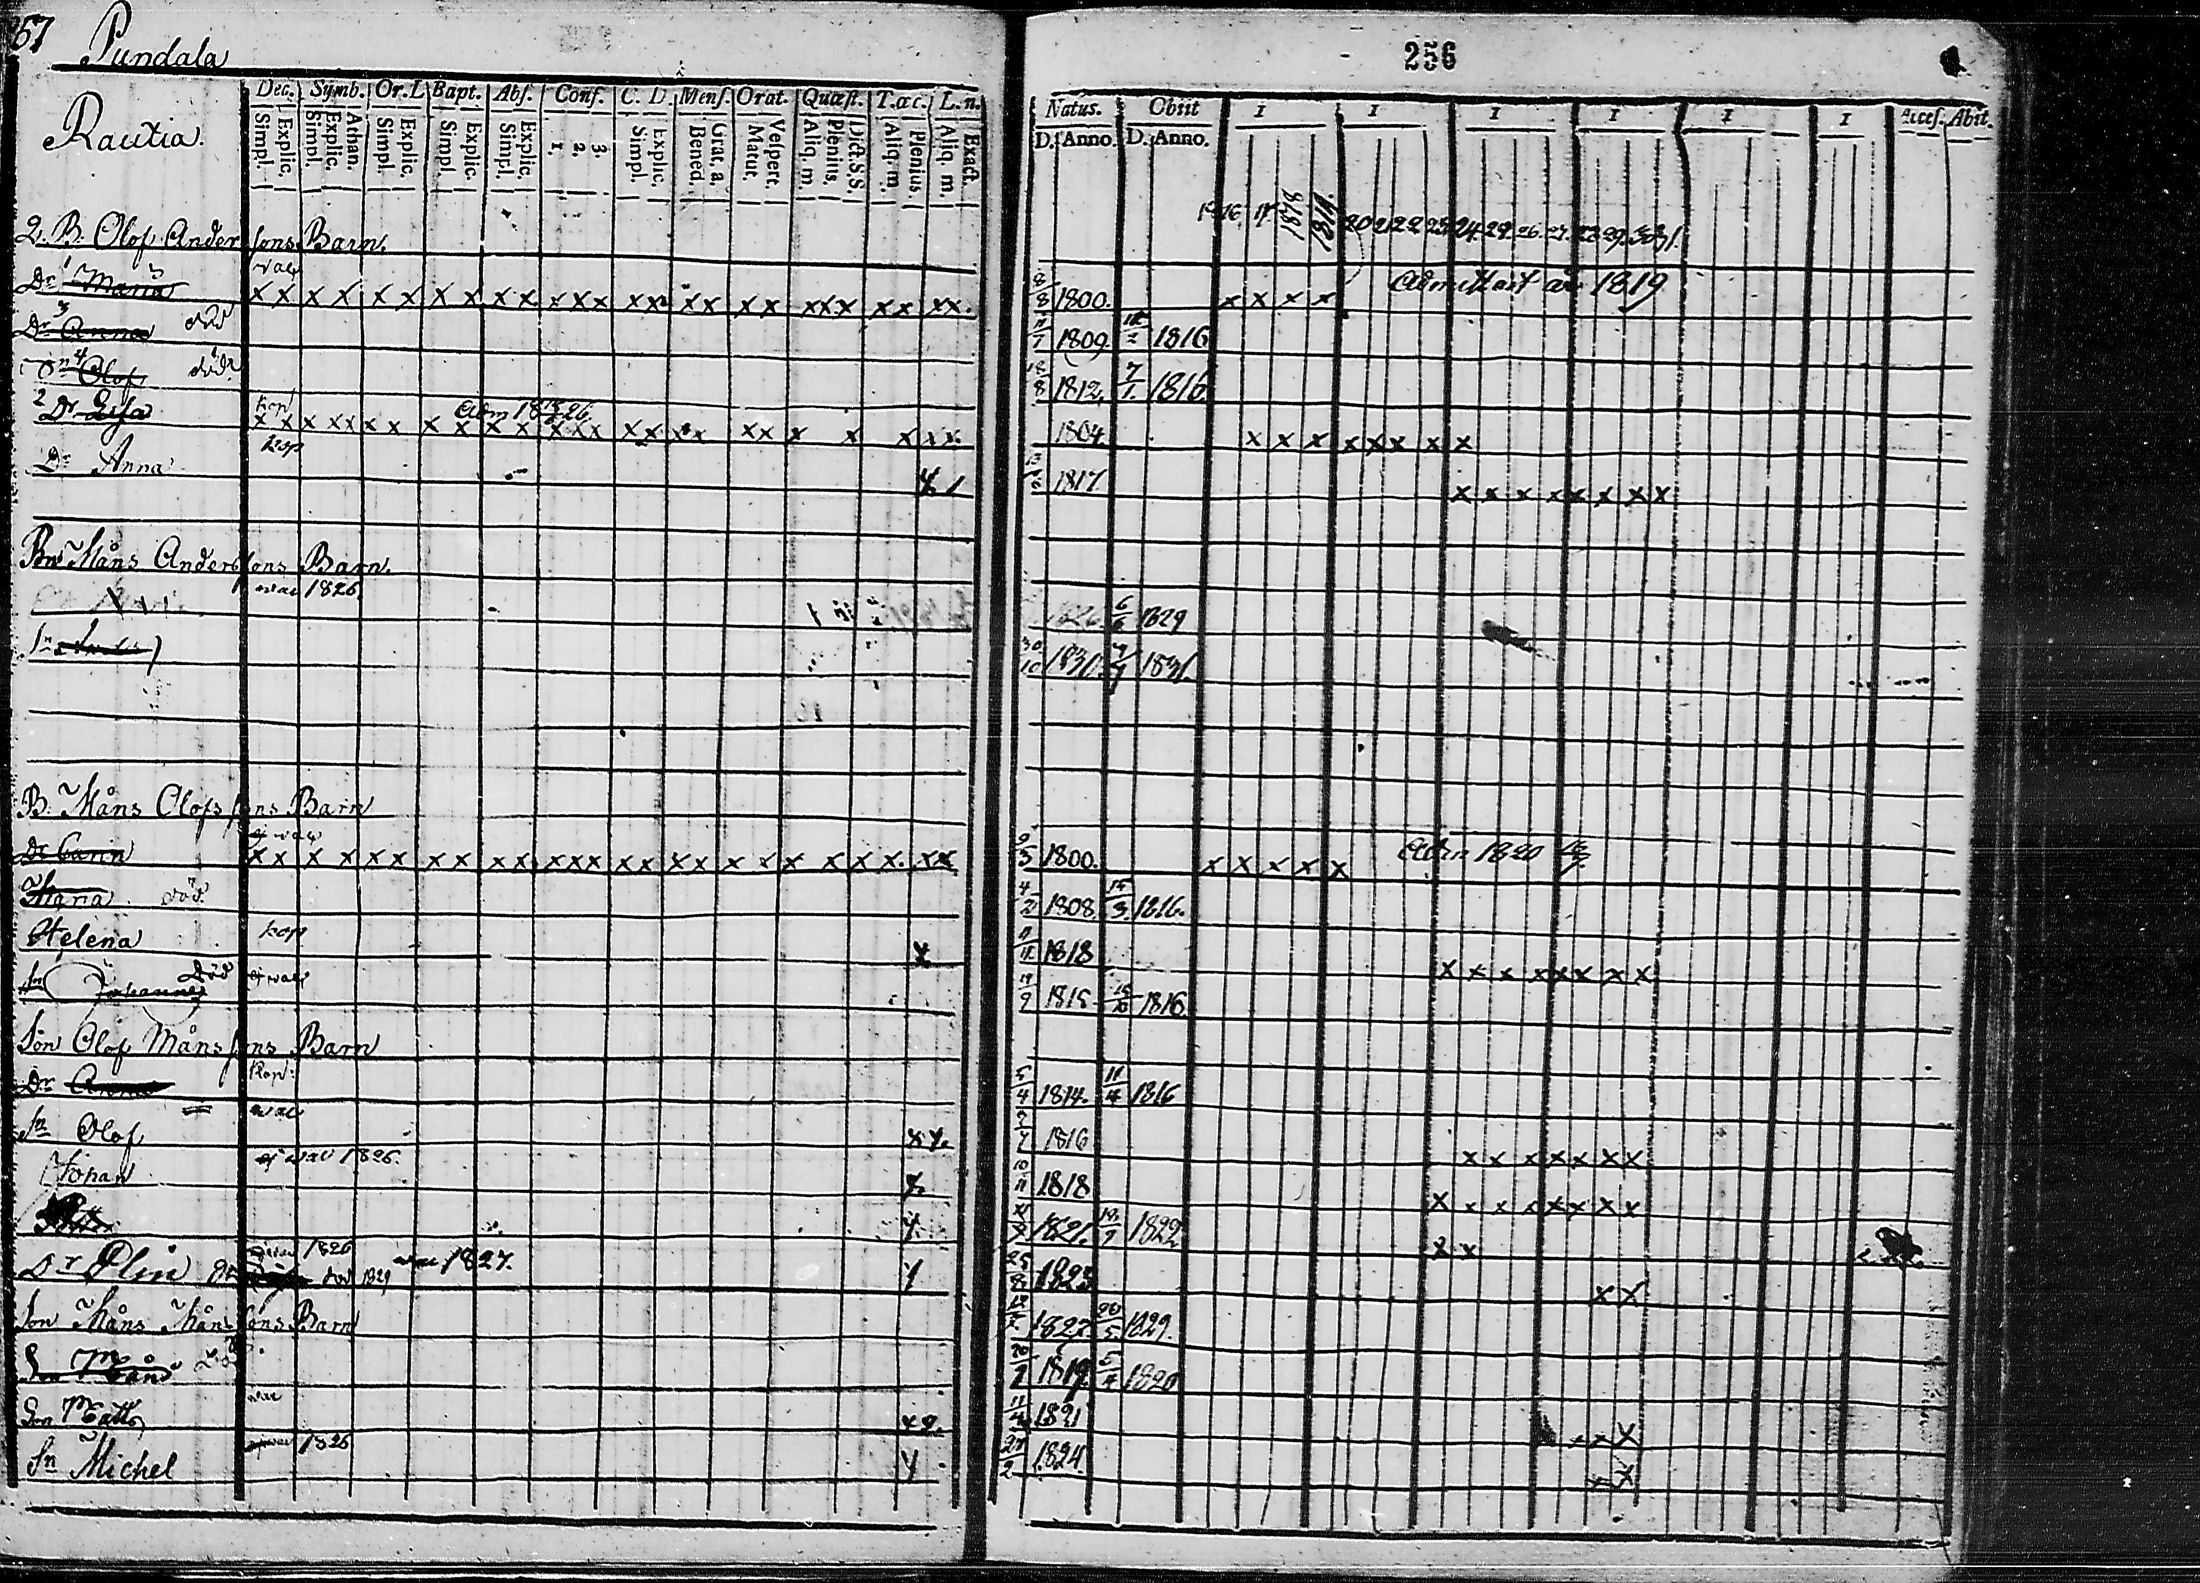 57 Pundala
256
Dec. Symb. Or. L Bapt. Abs. Conf. C. D. Mens. Orat. Quæst. T. æc. L. n.
Natus. Obiit I I I I I I Acces. Abit.
Simpl. Explic. Simpl. Explic. Athan. Simpl. Explic. Simpl. Explic. Simpl. Explic. 1. 2. 3. Simpl. Explic. Bened. Grat. a. Matut. Vespert. Aliq. m. Plenius. Dict. S.S. Aliq. m. Plenius. Aliq. m. Exact.
D. Anno. D. Anno.
Rautia.
16 17 1818 1819 20 21 22 23 24 25 26 27 28 29 30 31.
2. B. Olof Anderssons Barn.
Dr 1 Maria x x x x x x x x x x x x x x x x x x x x x x x x x x x 8/8 1800. x x x x Admitterit år 1819
Dr 3 Anna död 1809. 1816
4 Olof död. 18/8 1812. 7/1. 1816.
2 Dr Lisa Adm 1826. x x x x x x x x x x x x x x x x x x x x x x x x 1804. x x x x x x x x
Dr Anna kop 1817 x x x x x x x x
Bon Måns Anderssons Barn.
vac 1826
6/6 1829
Sn 30/10 1831. 1831.
B. Måns Olofssons Barn
Dr Carin ej vac x x x x x x x x x x x x x x x x x x x x x x x x x x 9/3 1800. x x x x x Adm 1820
Maria död. 4/2 1808. 15/3 1816.
Helena kop x 1818 x x x x x x x x
Sn Johannes Död ej vac 1815 1816
Son Olof Månssons Barn
Dr Anna Kop. 5/4 1814. 11/4 1816
Sn Olof vac x x. 1816 x x x x x x x
Johan ej vac 1826. x 10/11 1818 x x x x x x x x
Petter x 1821. 1822 x x
Dr Elin 1826 vac 1827. 1829 25/8 1823 x x
Son Måns Månssons Barn 1827 20/5 1829.
Sn Måns död. 1819 1820
Sn Matts vac x x. 11/4 1821 x x x
Sn Michel ej vac 1826 1824. x x